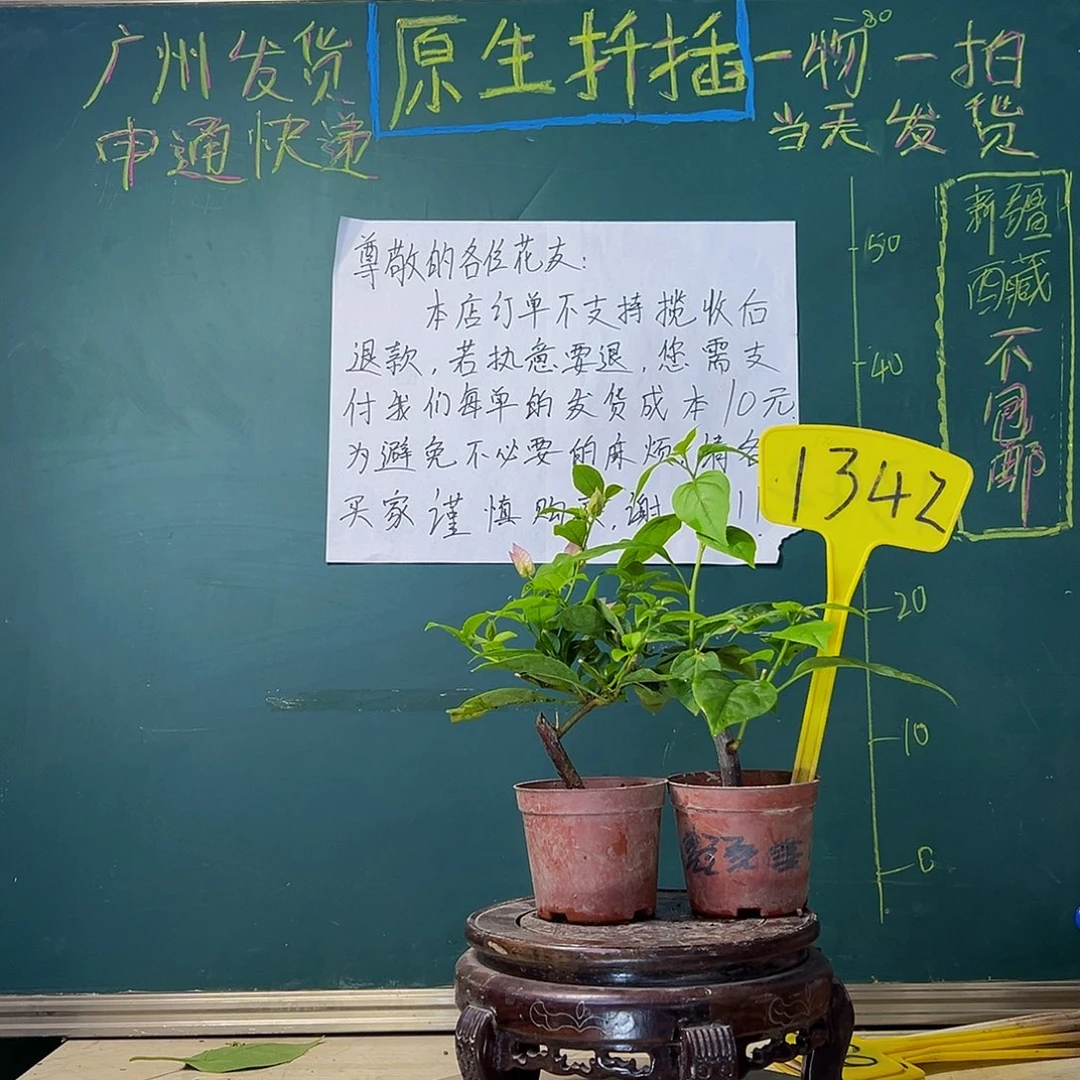 广州发货
申通快递
原生扦插
一物一拍
当天发货
新疆
西藏
不包邮
尊敬的各位花友:
本店订单不支持揽收后
退款,若执意要退,您需支
付我们每单的发货成本10元.
为避免不必要的麻烦,特各
买家谨慎购买,谢
50
40
20
10
0
1342